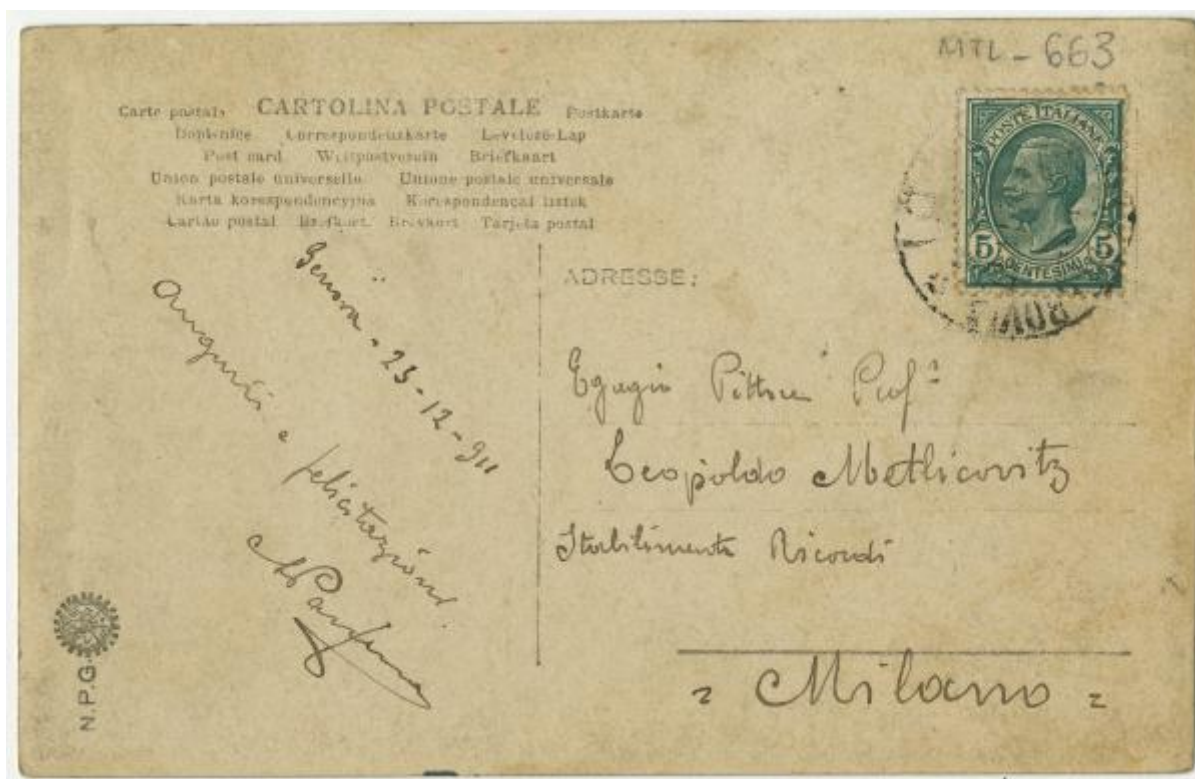 MTL - 663
Carte postale CARTOLINA POSTALE Postkarte
Dopisnice Correspondenzkarte Levelezö-Lap
Post card Weltpostverein Briefkaart
Union postale universelle Unione postale universale
Karta korespondencyjna Korespondencai listek
Cartao postal Brefkort Brevkort Tarjeta postal
POSTE ITALIANE
5 CENTESIMI 5
ADRESSE:
Genova - 23-12-911
Auguri e felicitazioni.
Egregio Pittore Prof.
Leopoldo Metlicovitz
Stabilimento Ricordi
Milano
N.P.G.